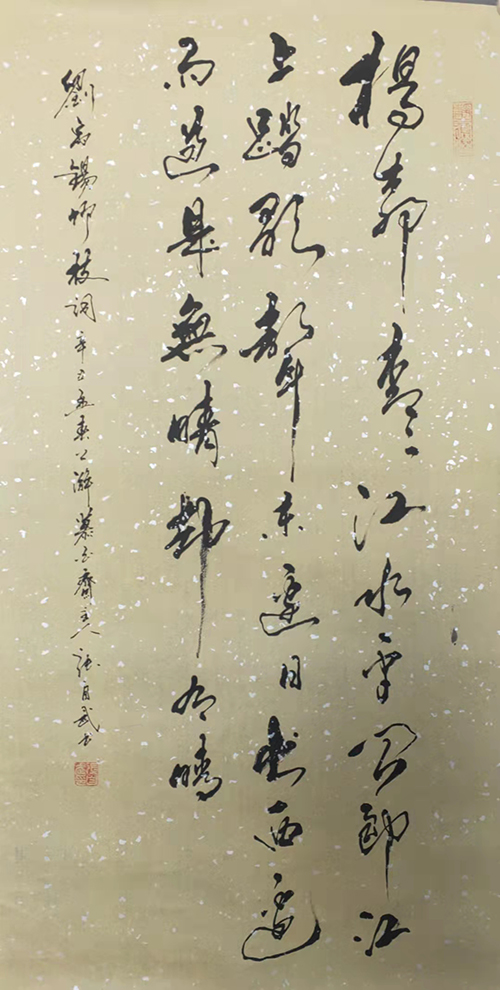 楊柳青青江水平聞郎江
上踏歌聲東邊日出西邊
雨道是無晴卻有晴
劉禹錫竹枝詞辛丑孟春齋主人書